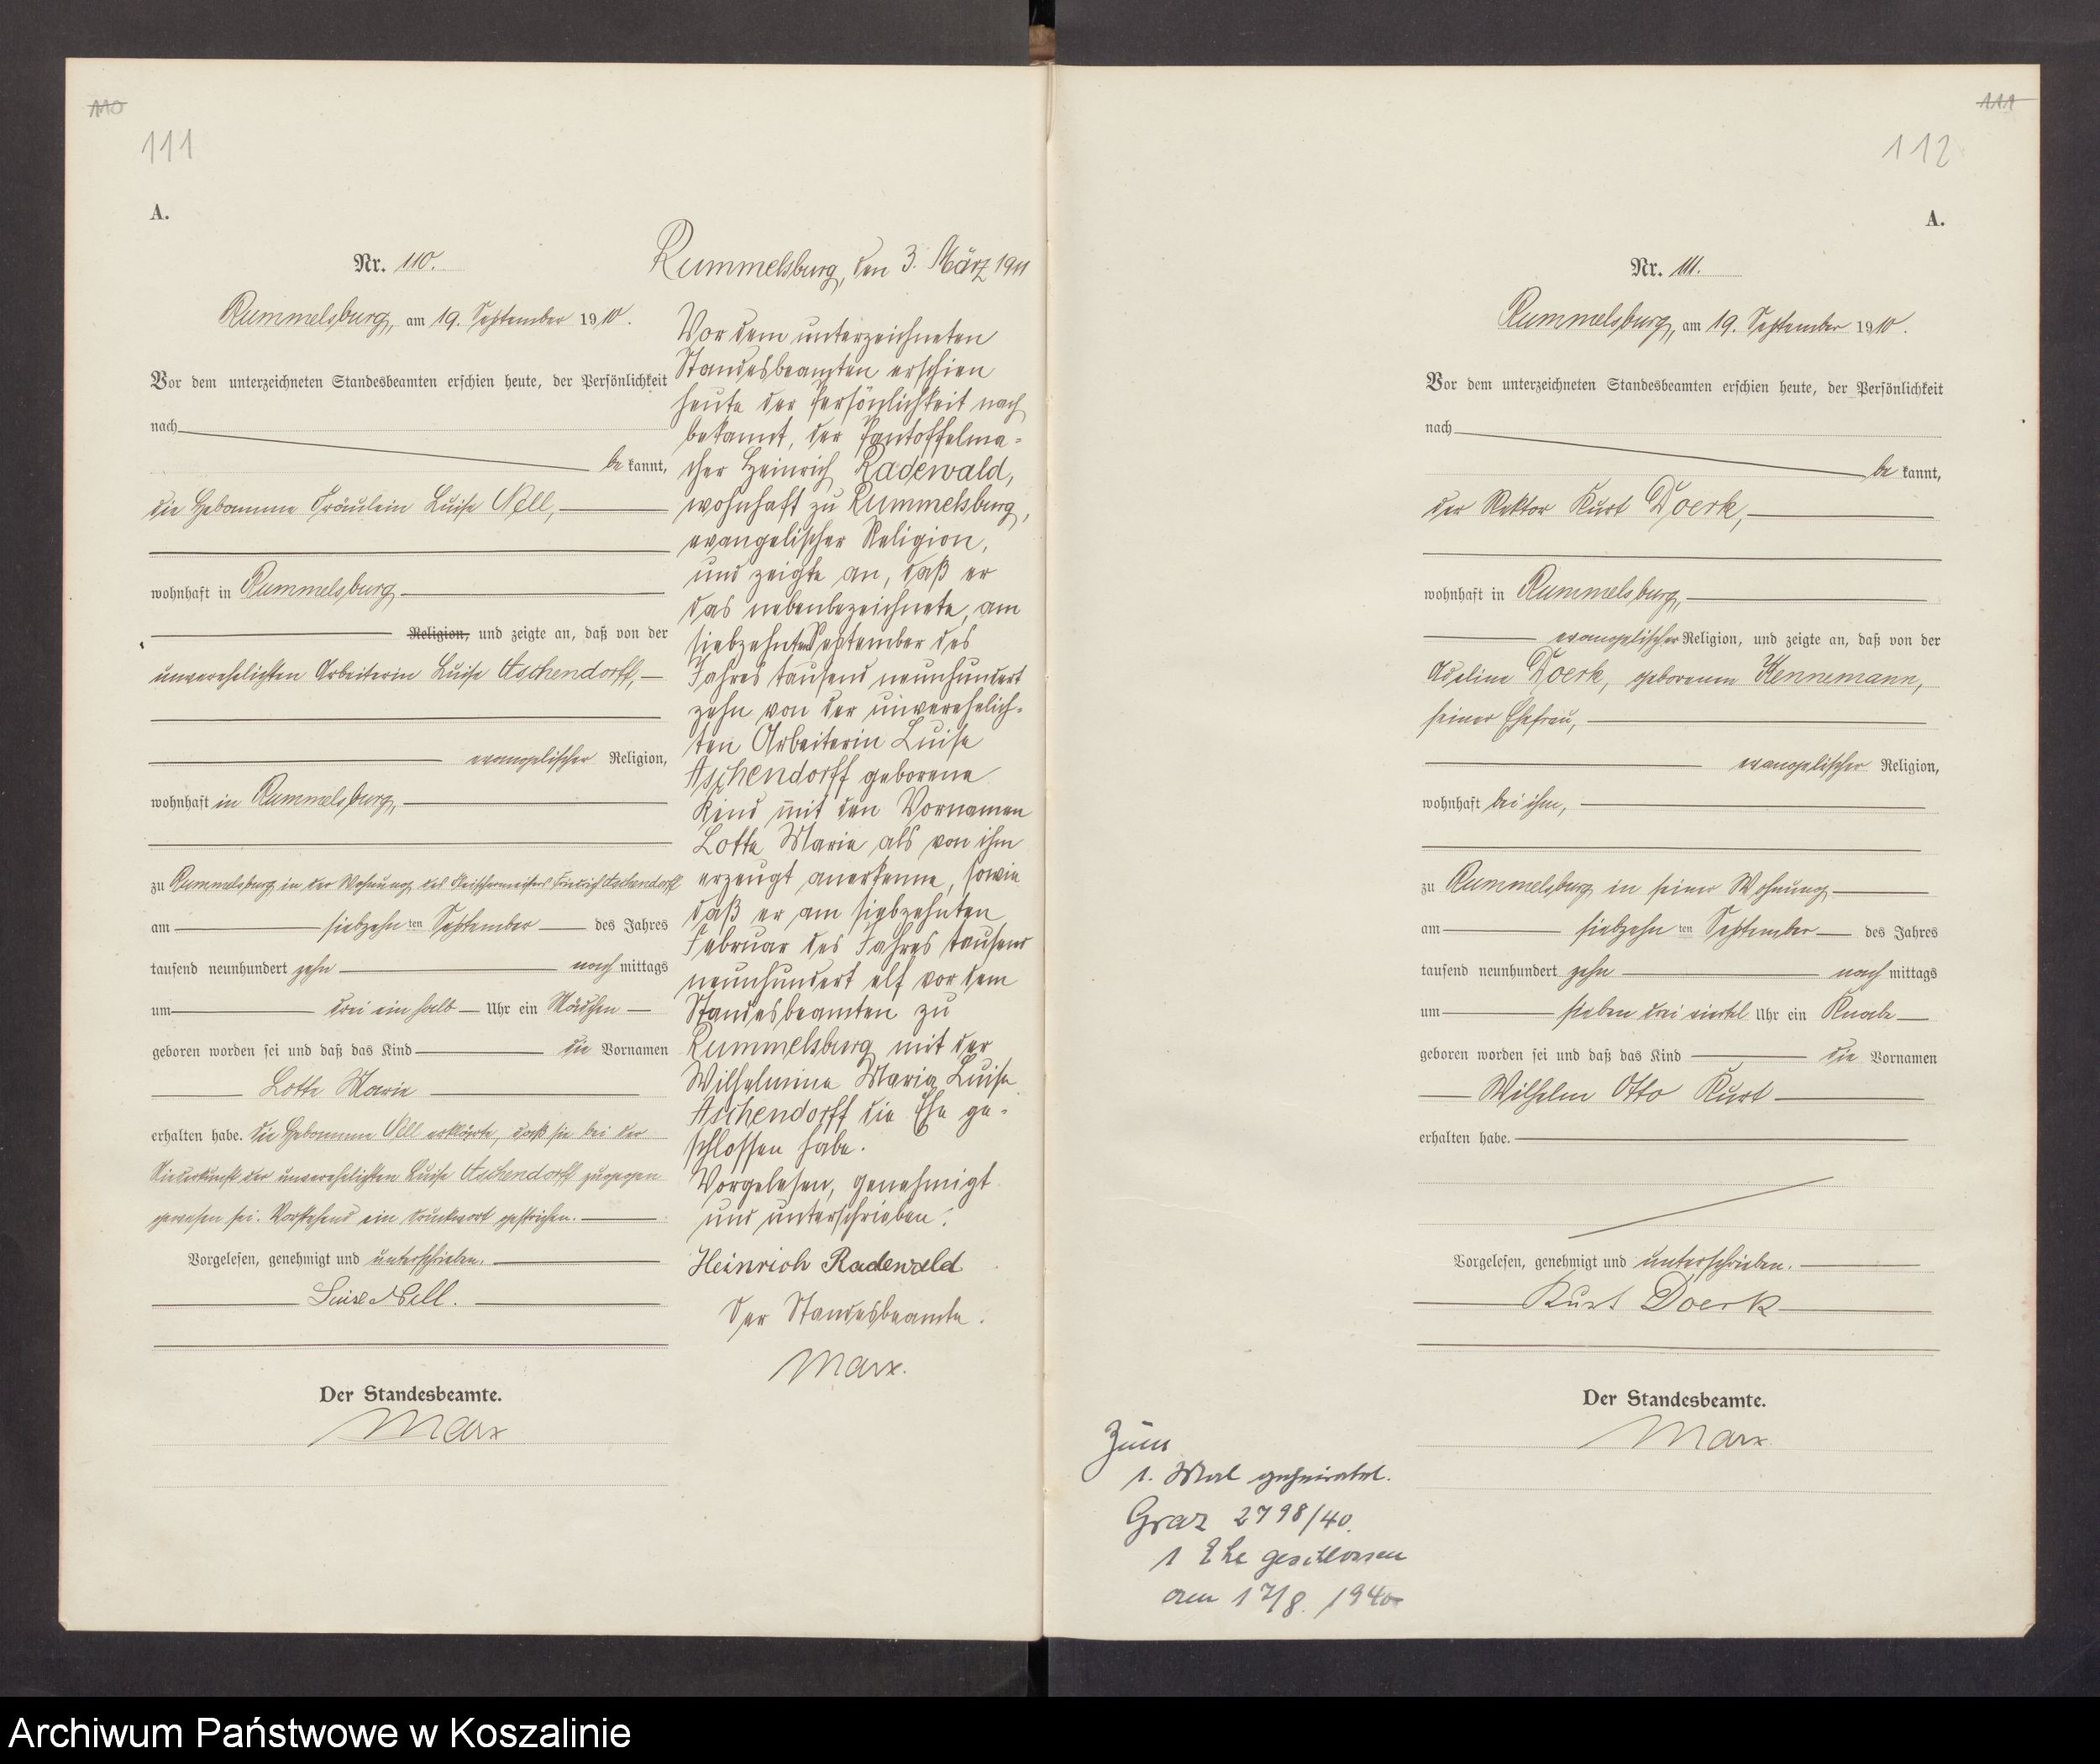 110
111
A.
Nr. 110.
Rummelsburg, am 19. September 1910.
Vor dem unterzeichneten Standesbeamten erschien heute, der Persönlichkeit
nach
bekannt,
die Hebamme Fräulein Luise Nell,
wohnhaft in Rummelsburg
Religion, und zeigte an, daß von der
unverehelichten Arbeiterin Luise Aschendorff,
evangelischer Religion,
wohnhaft in Rummelsburg,
zu Rummelsburg in der Wohnung des Fleischermeisters Friedrich Aschendorff
am siebzehnten September des Jahres
tausend neunhundert zehn nachmittags
um drei ein halb Uhr ein Mädchen
geboren worden sei und daß das Kind die Vornamen
Lotte Marie
erhalten habe. Die Hebamme Nell erklärte, daß sie bei der
Niederkunft der unverehelichten Luise Aschendorff zugegen
gewesen sei. Vorstehend ein Druckwort gestrichen.
Vorgelesen, genehmigt und unterschrieben.
Luise Nell.
Der Standesbeamte.
Marx
Rummelsburg, den 3. März 1911
Vor dem unterzeichneten
Standesbeamten erschien
heute der Persönlichkeit nach
bekannt, der Pantoffelma-
cher Heinrich Radewald,
wohnhaft zu Rummelsburg,
evangelischer Religion,
und zeigte an, daß er
das nebenbezeichnete, am
siebzehnten September des
Jahres tausend neunhundert
zehn von der unverehelich-
ten Arbeiterin Luise
Aschendorff geborene
Kind mit den Vornamen
Lotte Marie als von ihm
erzeugt anerkenne, sowie
daß er am siebzehnten
Februar des Jahres tausend
neunhundert elf vor dem
Standesbeamten zu
Rummelsburg mit der
Wilhelmine Marie Luise
Aschendorff die Ehe ge-
schlossen habe.
Vorgelesen, genehmigt
und unterschrieben.
Heinrich Radewald
Der Standesbeamte.
Marx.
111
112
A.
Nr. 111.
Rummelsburg, am 19. September 1910.
Vor dem unterzeichneten Standesbeamten erschien heute, der Persönlichkeit
nach
bekannt,
der Rektor Kurt Doerk,
wohnhaft in Rummelsburg,
evangelischer Religion, und zeigte an, daß von der
Adeline Doerk, geborenen Hennemann,
seiner Ehefrau,
evangelischer Religion,
wohnhaft bei ihm,
zu Rummelsburg in seiner Wohnung
am siebzehnten September des Jahres
tausend neunhundert zehn nachmittags
um sieben drei viertel Uhr ein Knabe
geboren worden sei und daß das Kind die Vornamen
Wilhelm Otto Kurt
erhalten habe.
Vorgelesen, genehmigt und unterschrieben.
Kurt Doerk
Der Standesbeamte.
Marx
Zum
1. Mal geheiratet.
Graz 2798/40.
1 Ehe geschlossen
am 17/8. 1940
Archiwum Państwowe w Koszalinie